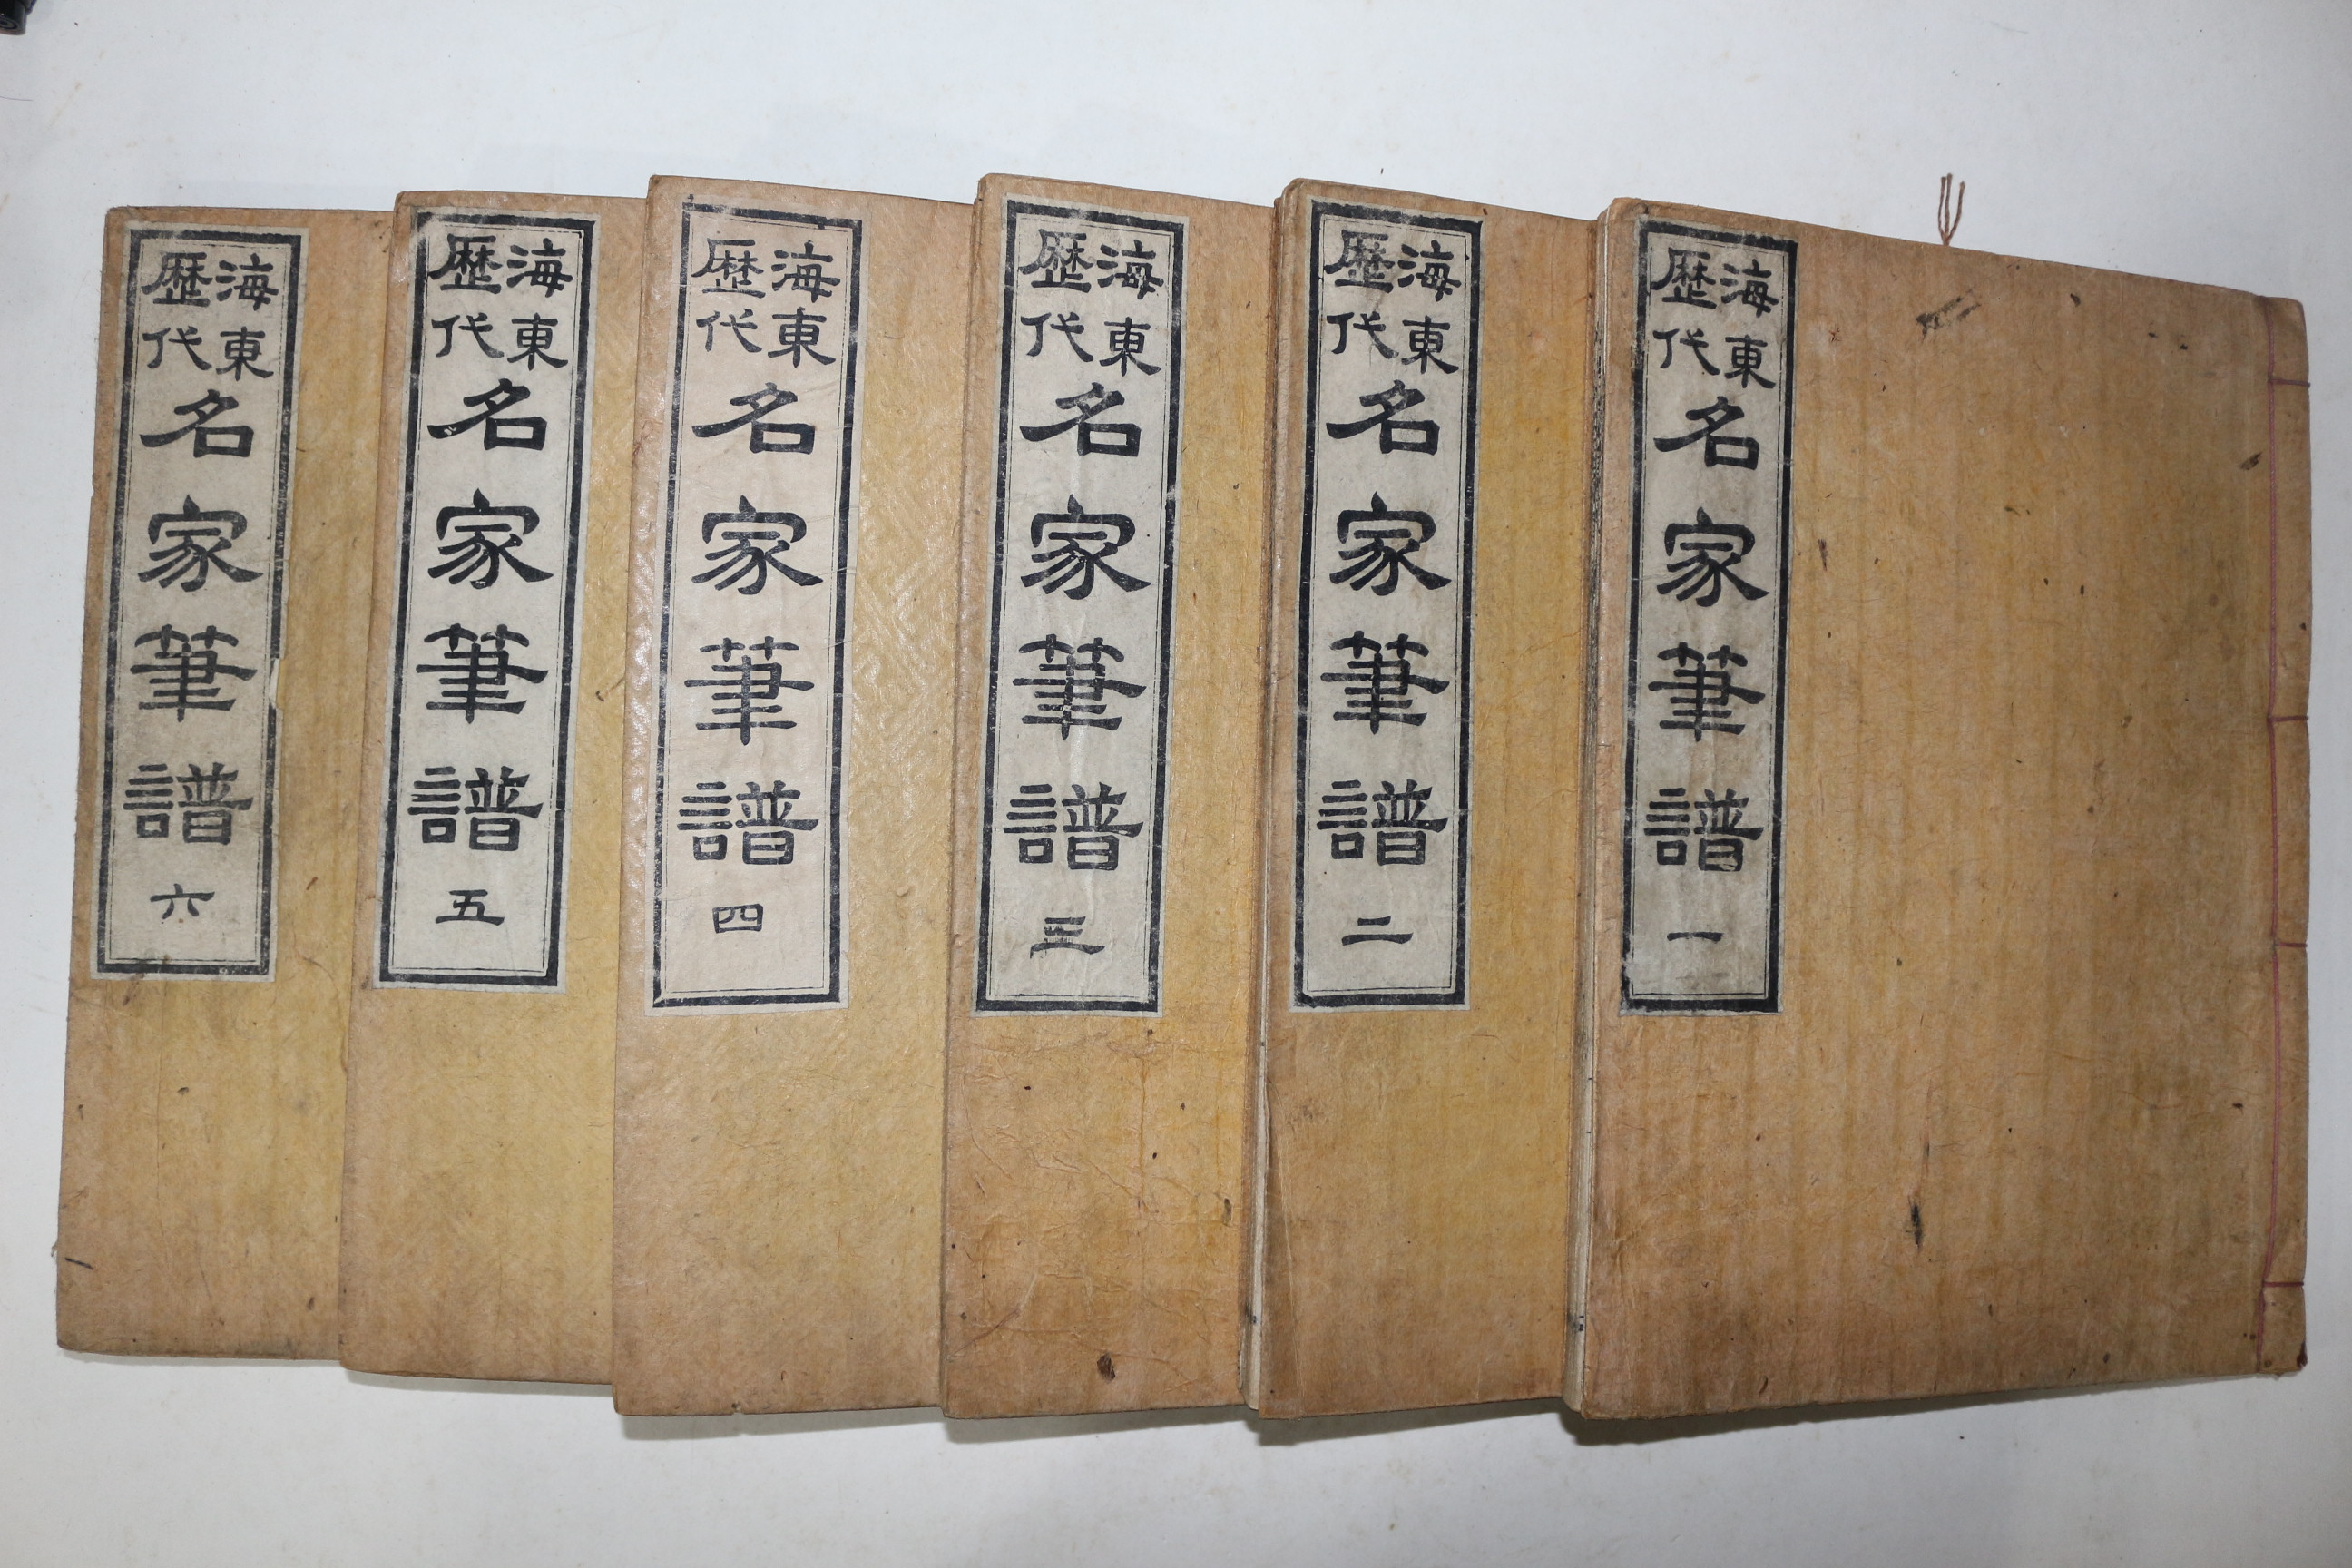 海東歷代名家筆譜 一
海東歷代名家筆譜 二
海東歷代名家筆譜 三
海東歷代名家筆譜 四
海東歷代名家筆譜 五
海東歷代名家筆譜 六